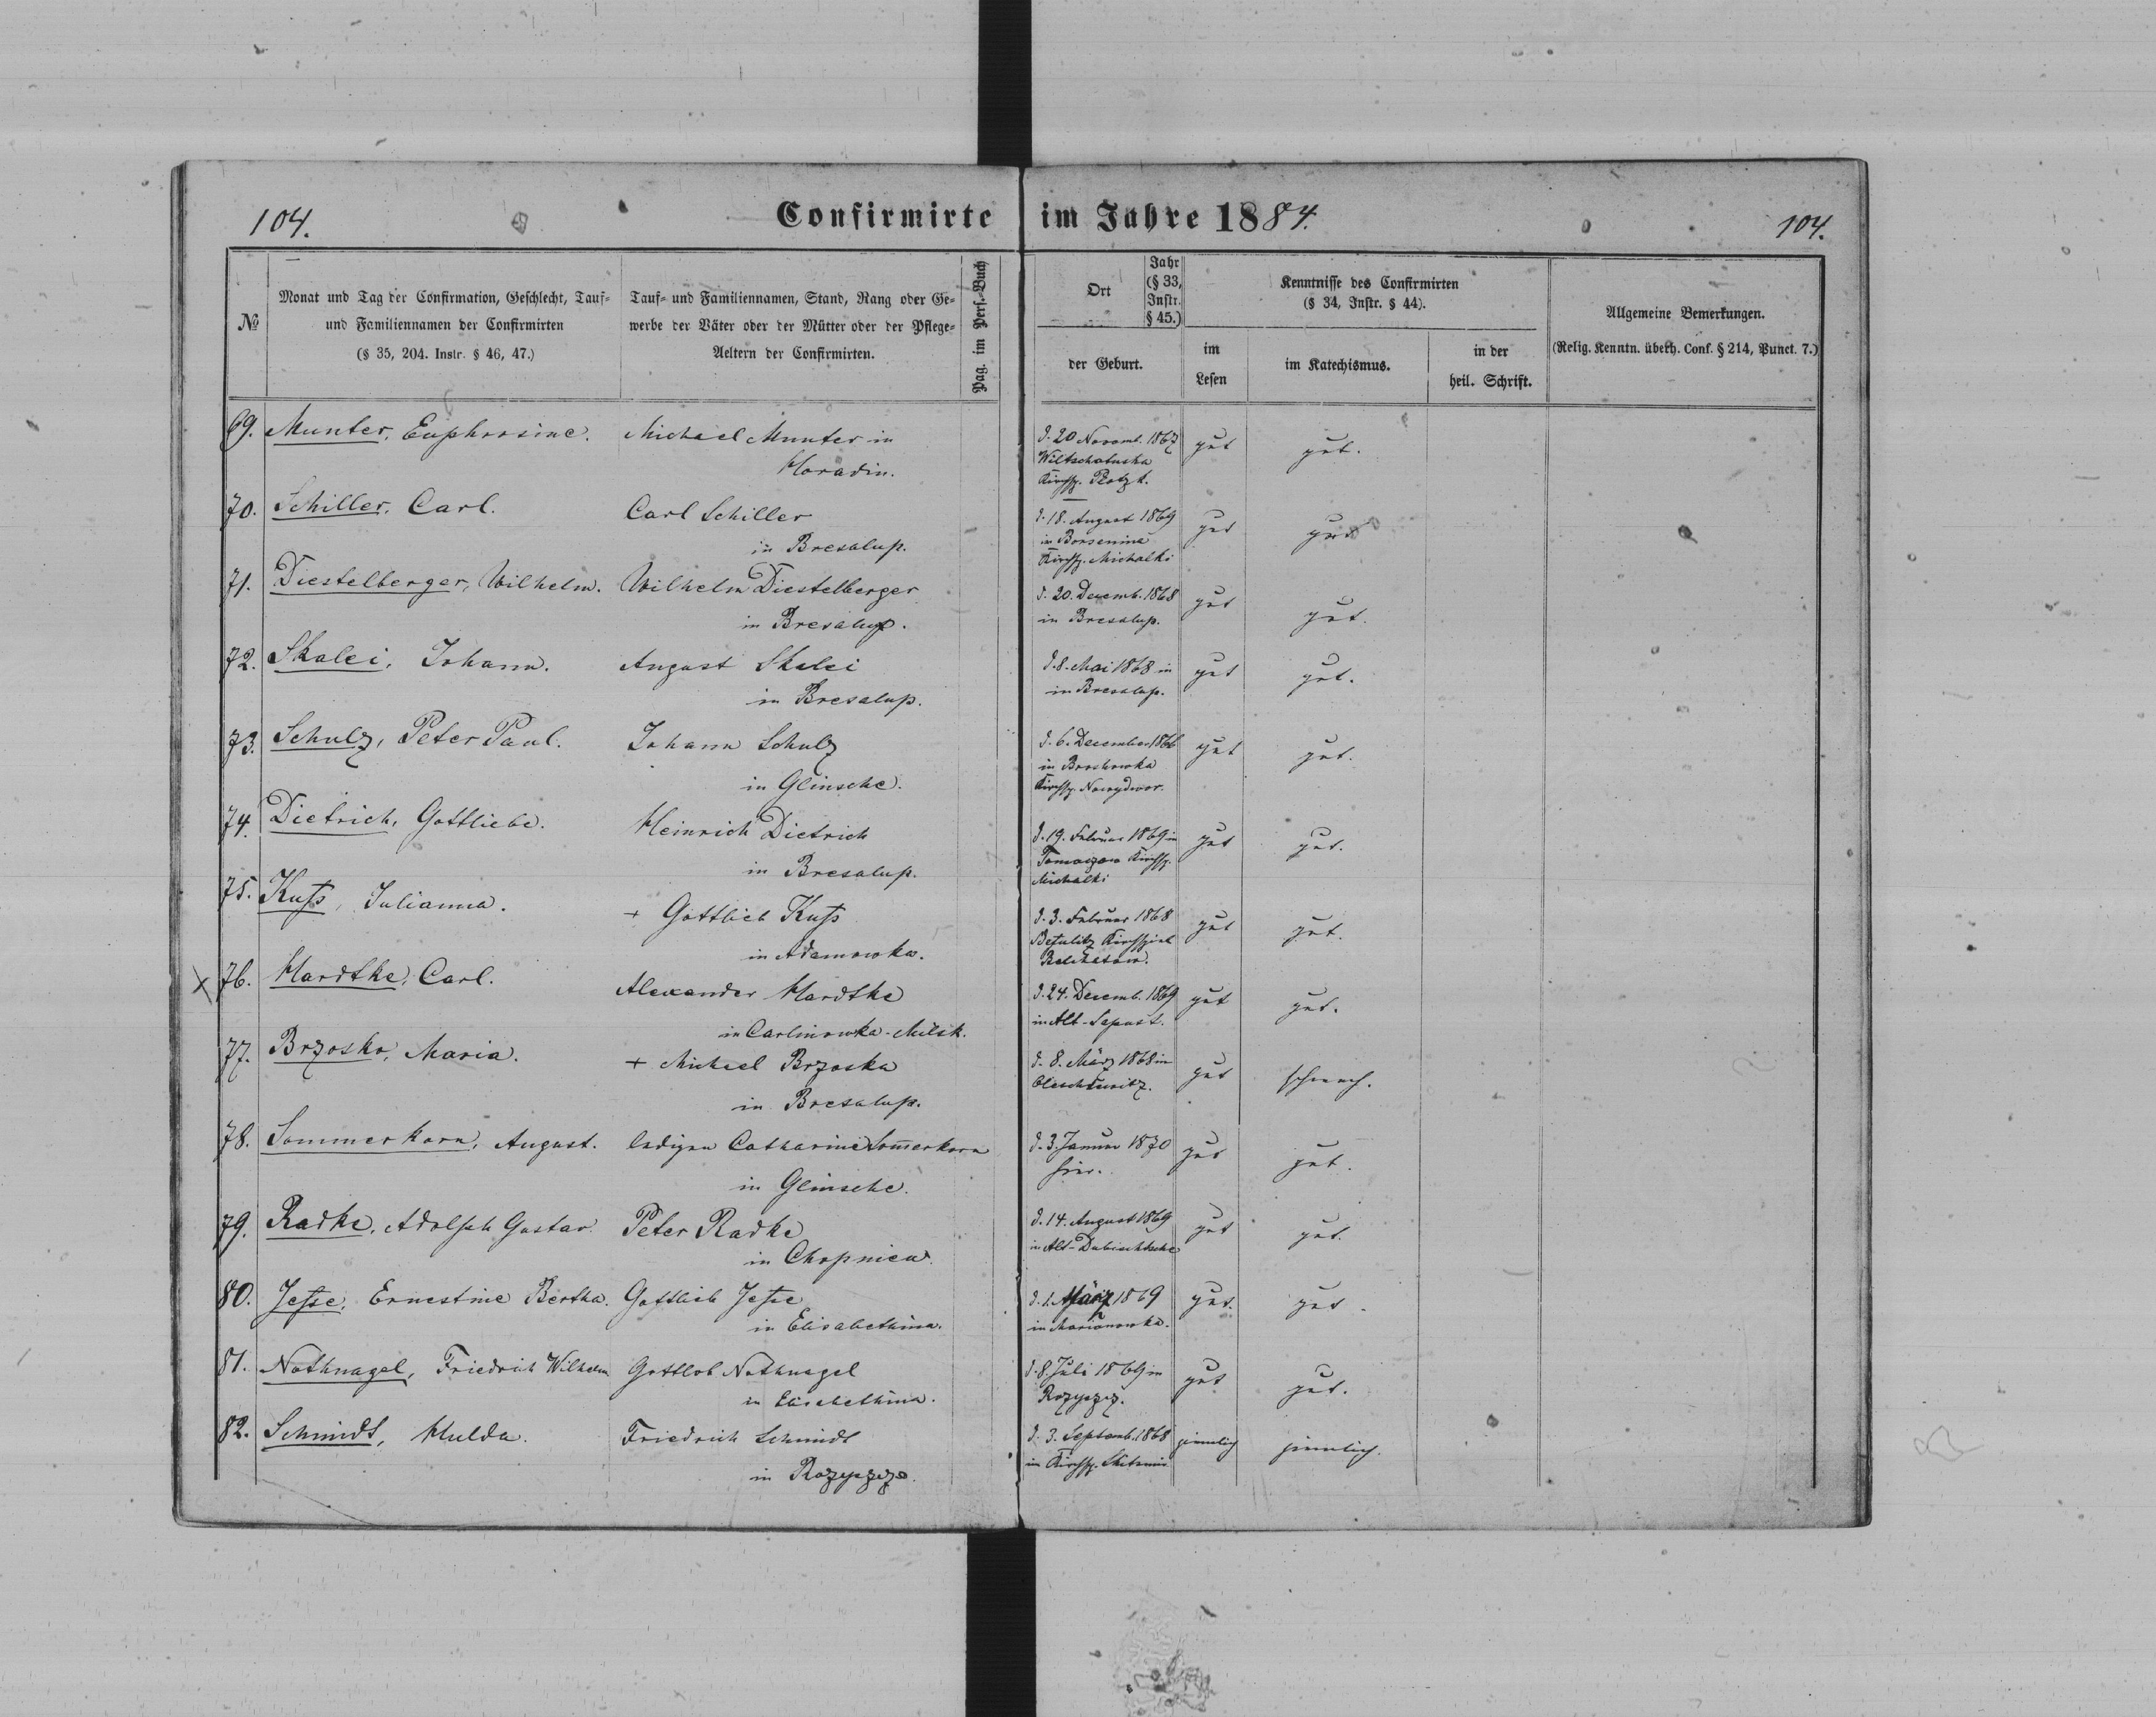 104.
Confirmirte im Jahre 1884.
104.
№
Monat und Tag der Confirmation, Geschlecht, Tauf-
und Familiennamen der Confirmirten
(§ 35, 204. Instr. § 46, 47.)
Tauf- und Familiennamen, Stand, Rang oder Ge-
werbe der Väter oder der Mütter oder der Pflege-
Aeltern der Confirmirten.
Pag. im Pers.-Buch
Ort
Jahr
(§ 33,
Instr.
§ 45.)
der Geburt.
Kenntnisse des Confirmirten
(§ 34, Instr. § 44).
im
Lesen
im Katechismus.
in der
heil. Schrift.
Allgemeine Bemerkungen.
(Relig. Kenntn. überh. Conf. § 214, Punct. 7.)
69. Munter, Euphrosine. Michael Munter in
Horadin.
d. 20 Novemb. 1867
Wiltschatuska
Kirchsp. Plotzk.
gut gut.
70. Schiller, Carl. Carl Schiller
in Bresalup.
d. 18. August 1869
in Borsenine
Kirchsp. Michalki
gut gut
71. Diestelberger, Wilhelm. Wilhelm Diestelberger
in Bresalup.
d. 20. Decemb. 1868
in Bresalup.
gut gut.
72. Skalei, Johann. August Skalei
in Bresalup.
d. 8. Mai 1868 in
in Bresalup.
gut gut.
73. Schulz, Peter Paul. Johann Schulz
in Glinsche.
d. 6. December 1866
in Broshowka
Kirchsp. Nowydwor.
gut gut.
74. Dietrich, Gottliebe. Heinrich Dietrich
in Bresalup.
d. 19. Februar 1869 in
Tomaszewo Kirchsp.
Michalki
gut gut.
75. Kuß, Julianna. + Gottlieb Kuß
in Adamowka.
d. 3. Februar 1868
Kirchspiel
Belchatow.
gut gut.
x 76. Hardtke, Carl. Alexander Hardtke
in Carlinowka-Milsk.
d. 24. Decemb. 1869
in Alt-Sapust.
gut gut.
77. Brzosko, Maria. + Michael Brzoska
in Bresalup.
d. 8. März 1868 in
Oleschkewitz.
gut schwach.
78. Sommerkorn, August. ledigen Catharine Som̅erkorn
in Glinsche.
d. 3. Januar 1870
hier.
gut gut.
79. Radke, Adolph Gustav. Peter Radke
in Chopniew.
d. 14. August 1869
in Alt-Dubischtsche
gut gut.
80. Jesse, Ernestine Bertha. Gottlieb Jesse
in Elisabethina.
d. 1. März 1869
in Marianowka.
gut. gut.
81. Nothnagel, Friedrich Wilhelm Gottlob Nothnagel
in Elisabethina.
d. 8. Juli 1869 in
Rozyszcz.
gut gut.
82. Schmidt, Hulda. Friedrich Schmidt
in Rozyszcze.
d. 3. Septemb. 1868
im Kirchsp.
ziemlich ziemlich.